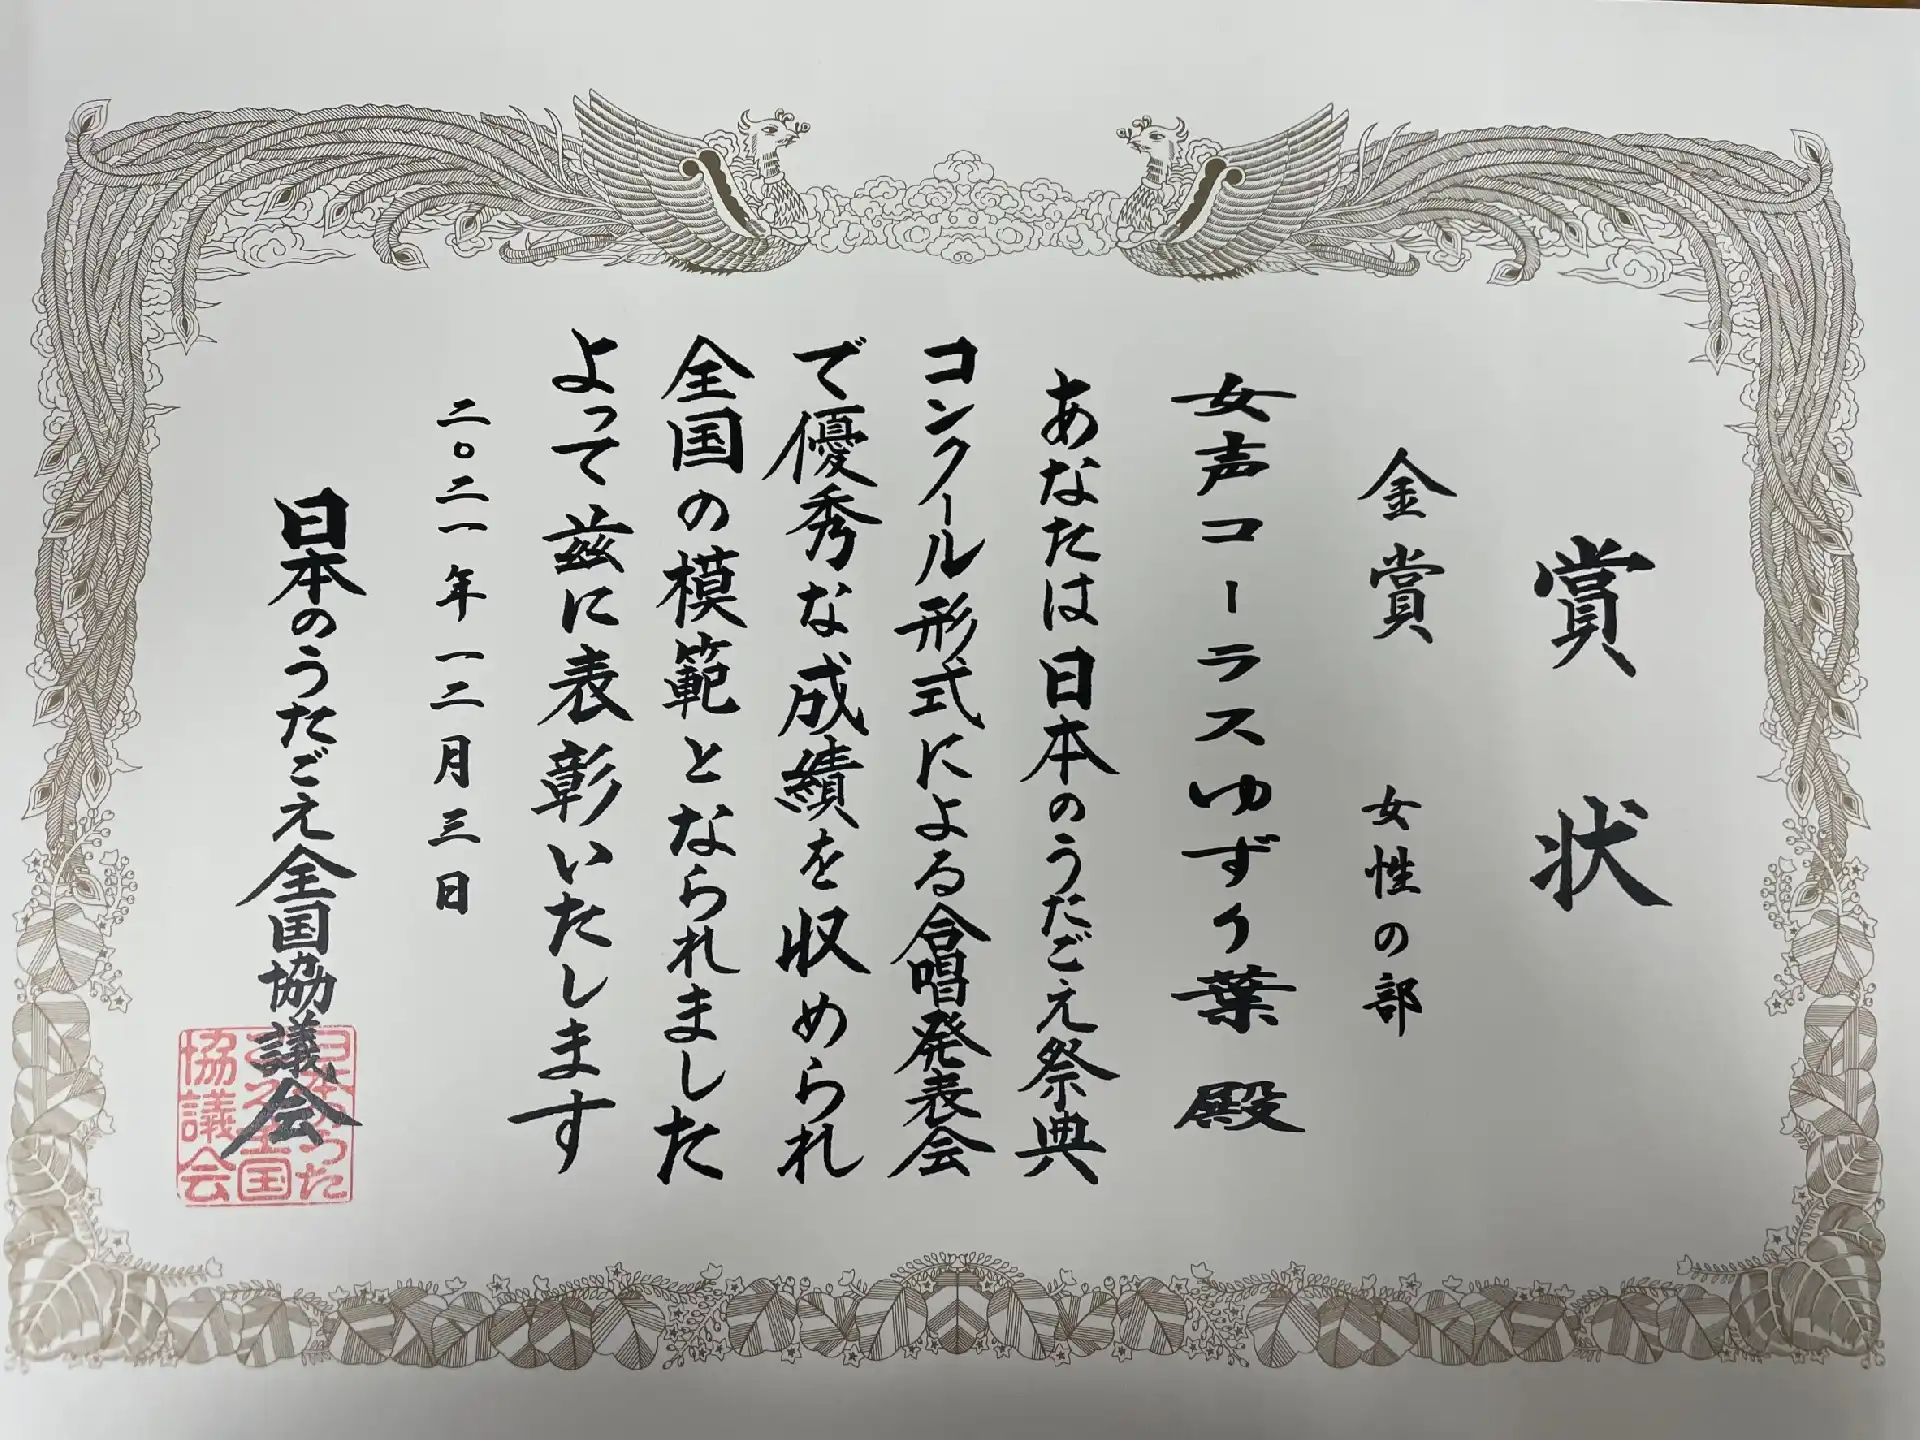 賞状
金賞 女性の部
女声コーラスゆずり葉 殿
あなたは日本のうたごえ祭典
コンクール形式による合唱発表会
で優秀な成績を収められ
全国の模範となられました
よって茲に表彰いたします
二〇二一年一二月三日
日本のうたごえ全国協議会
日本のうた
ごえ全国
協議会